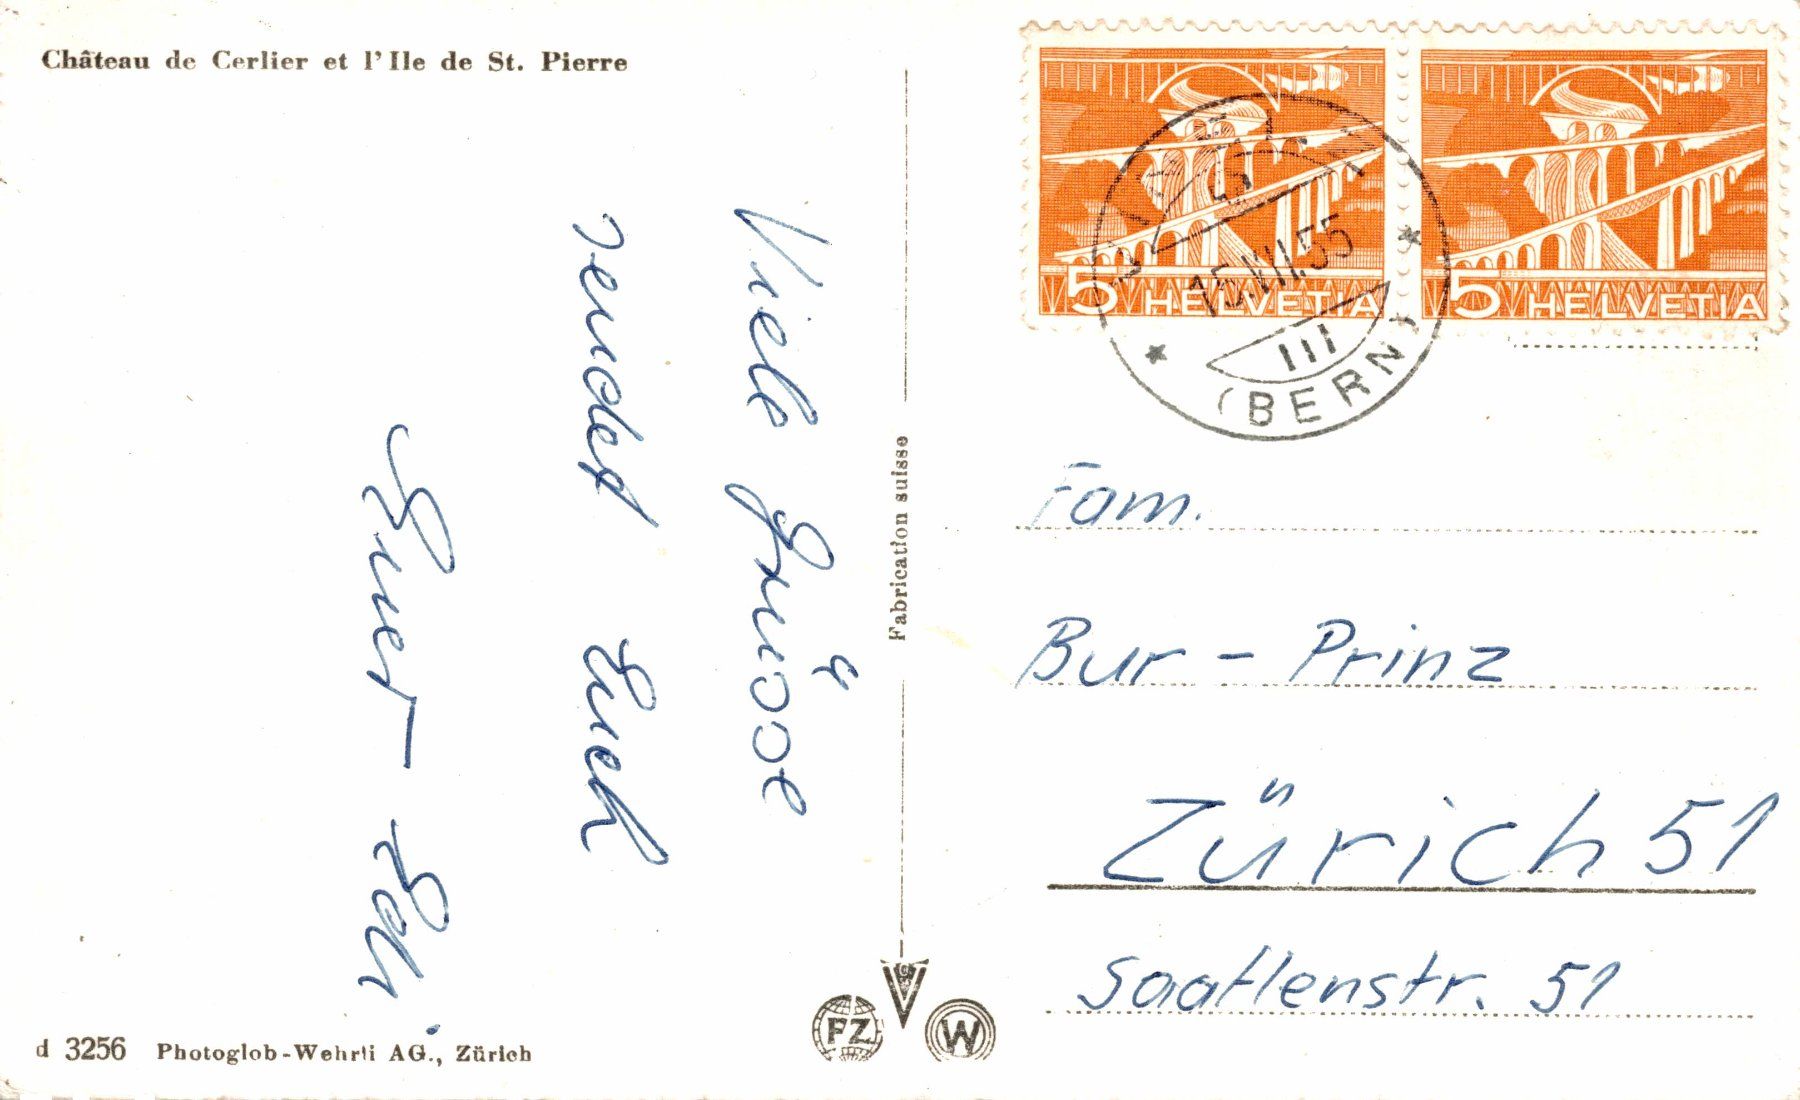 Château de Cerlier et l'Ile de St. Pierre
5 HELVETIA
5 HELVETIA
III
(BERN)
Viele Grüsse
sendet Euch
Euer
Fabrication suisse
Fam.
Bur - Prinz
Zürich 51
Saatlenstr. 51
d 3256 Photoglob-Wehrli AG., Zürich
FZ
V
W